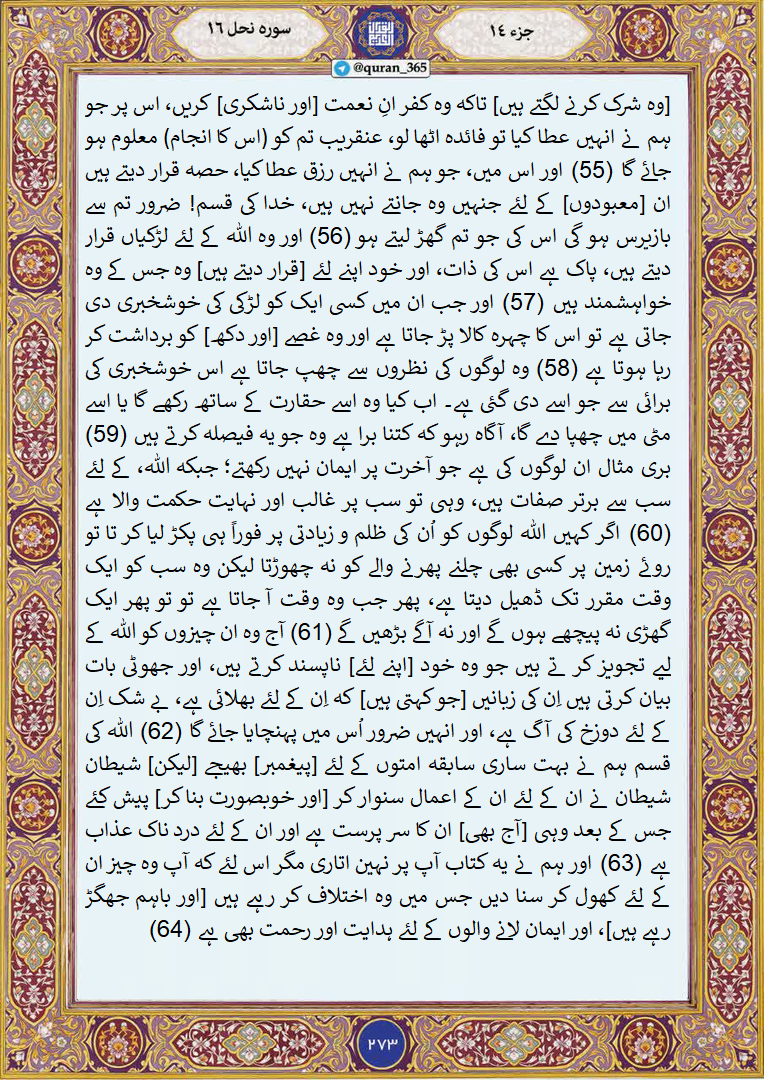 جزء ۱۴
سوره نحل ۱۶
@quran_365
[وہ شرک کرنے لگتے ہیں] تاکہ وہ کفرانِ نعمت [اور ناشکری] کریں، اس پر جو
ہم نے انہیں عطا کیا تو فائدہ اٹھا لو، عنقریب تم کو (اس کا انجام) معلوم ہو
جائے گا (55) اور اس میں، جو ہم نے انہیں رزق عطا کیا، حصہ قرار دیتے ہیں
ان [معبودوں] کے لئے جنہیں وہ جانتے نہیں ہیں، خدا کی قسم! ضرور تم سے
بازپرس ہو گی اس کی جو تم گھڑ لیتے ہو (56) اور وہ اللہ کے لئے لڑکیاں قرار
دیتے ہیں، پاک ہے اس کی ذات، اور خود اپنے لئے [قرار دیتے ہیں] وہ جس کے وہ
خواہشمند ہیں (57) اور جب ان میں کسی ایک کو لڑکی کی خوشخبری دی
جاتی ہے تو اس کا چہرہ کالا پڑ جاتا ہے اور وہ غصے [اور دکھ] کو برداشت کر
رہا ہوتا ہے (58) وہ لوگوں کی نظروں سے چھپ جاتا ہے اس خوشخبری کی
برائی سے جو اسے دی گئی ہے۔ اب کیا وہ اسے حقارت کے ساتھ رکھے گا یا اسے
مٹی میں چھپا دے گا، آگاہ رہو کہ کتنا برا ہے وہ جو یہ فیصلہ کرتے ہیں (59)
بری مثال ان لوگوں کی ہے جو آخرت پر ایمان نہیں رکھتے؛ جبکہ اللہ، کے لئے
سب سے برتر صفات ہیں، وہی تو سب پر غالب اور نہایت حکمت والا ہے
(60) اگر کہیں اللہ لوگوں کو اُن کی ظلم و زیادتی پر فوراً ہی پکڑ لیا کر تا تو
روئے زمین پر کسی بھی چلنے پھرنے والے کو نہ چھوڑتا لیکن وہ سب کو ایک
وقت مقرر تک ڈھیل دیتا ہے، پھر جب وہ وقت آ جاتا ہے تو تو پھر ایک
گھڑی نہ پیچھے ہوں گے اور نہ آگے بڑھیں گے (61) آج وہ ان چیزوں کو اللہ کے
لیے تجویز کر تے ہیں جو وہ خود [اپنے لئے] ناپسند کرتے ہیں، اور جھوٹی بات
بیان کرتی ہیں اِن کی زبانیں [جو کہتی ہیں] کہ اِن کے لئے بھلائی ہے، بے شک اِن
کے لئے دوزخ کی آگ ہے، اور انہیں ضرور اُس میں پہنچایا جائے گا (62) اللہ کی
قسم ہم نے بہت ساری سابقہ امتوں کے لئے [پیغمبر] بھیجے [لیکن] شیطان
شیطان نے ان کے لئے ان کے اعمال سنوار کر [اور خوبصورت بنا کر] پیش کئے
جس کے بعد وہی [آج بھی] ان کا سر پرست ہے اور ان کے لئے درد ناک عذاب
ہے (63) اور ہم نے یہ کتاب آپ پر نہین اتاری مگر اس لئے کہ آپ وہ چیز ان
کے لئے کھول کر سنا دیں جس میں وہ اختلاف کر رہے ہیں [اور باہم جھگڑ
رہے ہیں]، اور ایمان لانے والوں کے لئے ہدایت اور رحمت بھی ہے (64)
۲۷۳